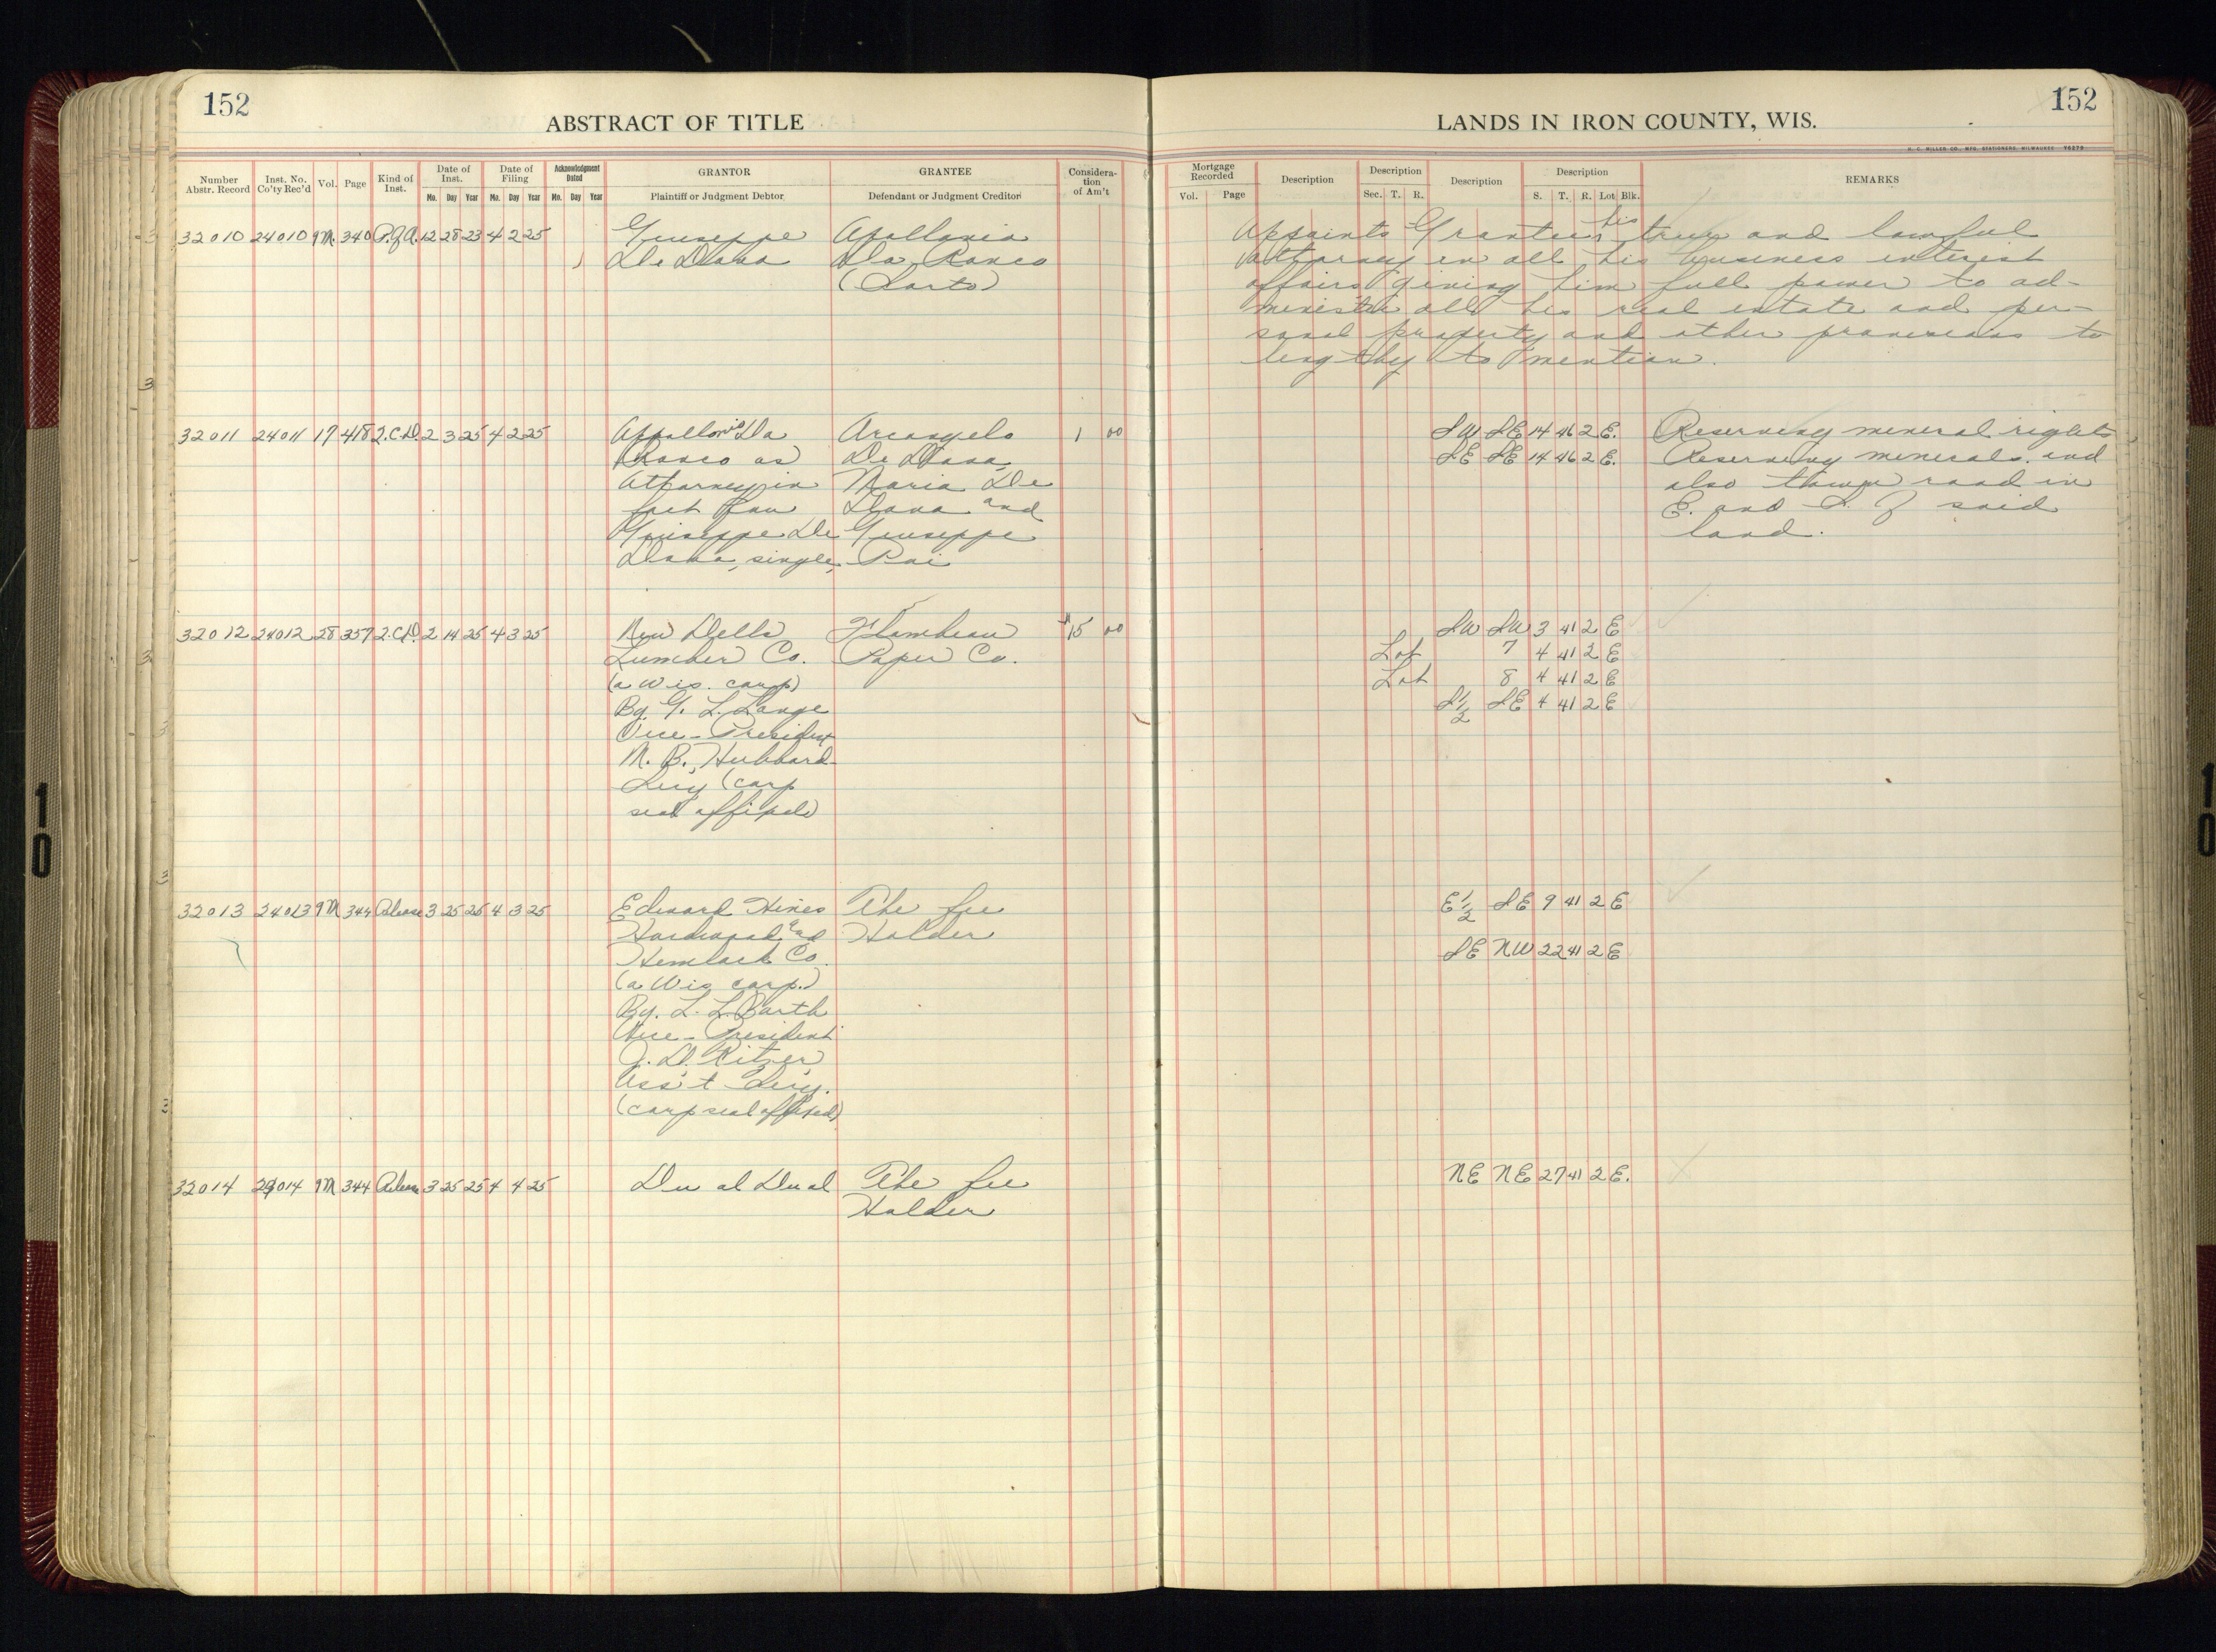 152
ABSTRACT OF TITLE
Number Abstr. Record Inst. No. Co'ty Rec'd Vol. Page Kind of Inst. Date of Inst. Mo. Day Year Date of Filing Mo. Day Year Acknowledgment Dated Mo. Day Year GRANTOR Plaintiff or Judgment Debtor GRANTEE Defendant or Judgment Creditor Consideration of Am't
32010 24010 9M 340 P.of A. 12 28 23 4 2 25 Giuseppe Apollonia
De Diana Da Ronco
(Sarto)
32011 24011 17 418 2.C.D. 2 3 25 4 2 25 Appollonia Da Arcangelo 1 00
Ronco as De Diana,
Attorney in Maria De
fact for Diana and
Giuseppe De Giuseppe
Diana, single,
32012 24012 28 357 2.C.D. 2 14 25 4 3 25 New Dells Flambeau $15 00
Lumber Co. Paper Co.
(a Wis. corp)
By G. L. Lange
Vice-President
M. B. Hubbard
Secy (corp
seal affixed)
32013 24013 9M 344 Release 3 25 25 4 3 25 Edward Hines The fee
Hardwood and Holder
Hemlock Co.
(a Wis corp.)
By. L. L. Barth
Vice-President
J. D. Ritzer
Ass't Secy.
(corp seal affixed)
32014 24014 9M 344 Release 3 25 25 4 4 25 Du al Du al The fee
Holder
152
LANDS IN IRON COUNTY, WIS.
H. C. MILLER CO., MFG. STATIONERS, MILWAUKEE
Mortgage Recorded Vol. Page Description Description Sec. T. R. Description Description S. T. R. Lot Blk. REMARKS
Appoints Grantee his true and lawful
Attorney in all his business interest
affairs giving him full power to ad-
minister all his real estate and per-
sonal property and other provisions to
lengthy to mention.
SW SE 14 46 2 E. Reserving mineral rights
SE SE 14 46 2 E. Reserving minerals and
also town road in
E. and S. of said
land.
SW SW 3 41 2 E
Lot 7 4 41 2 E
Lot 8 4 41 2 E
S 1/2 SE 4 41 2 E
E 1/2 SE 9 41 2 E
SE NW 22 41 2 E
NE NE 27 41 2 E.
10
10